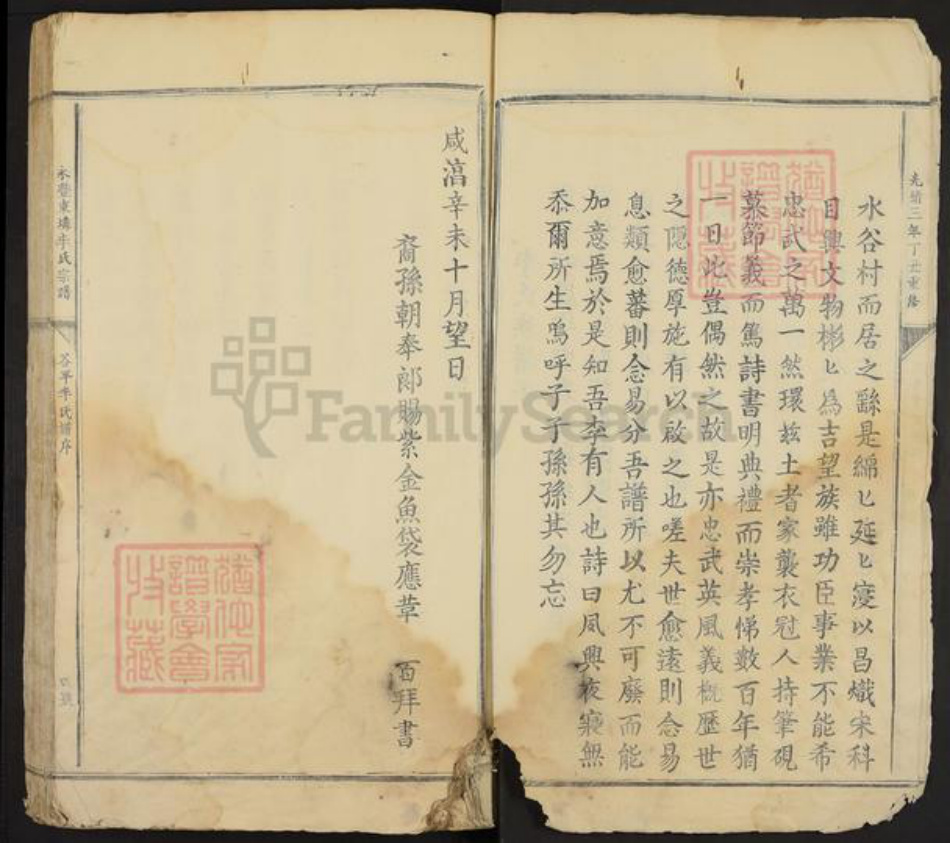 光緒三年丁丑重修
水谷村而居之繇是綿匕延匕寖以昌熾宋科
目興文物彬匕為吉望族雖功臣事業不能希
忠武之萬一然環茲土者家襲衣冠人持筆硯
慕節義而篤詩書明典禮而崇孝悌數百年猶
一日此豈偶然之故是亦忠武英風義概歷世
之隱德厚施有以啟之也嗟夫世愈遠則念易
息類愈蕃則念易分吾譜所以尤不可廢而能
加意焉於是知吾李有人也詩曰夙興夜寐無
忝爾所生嗚呼子子孫孫其勿忘
咸淳辛未十月望日
裔孫朝奉郎賜紫金魚袋應革 百拜書
李氏宗譜
谷平李氏譜序
FamilySearch
譜學會
收藏
譜學會
收藏